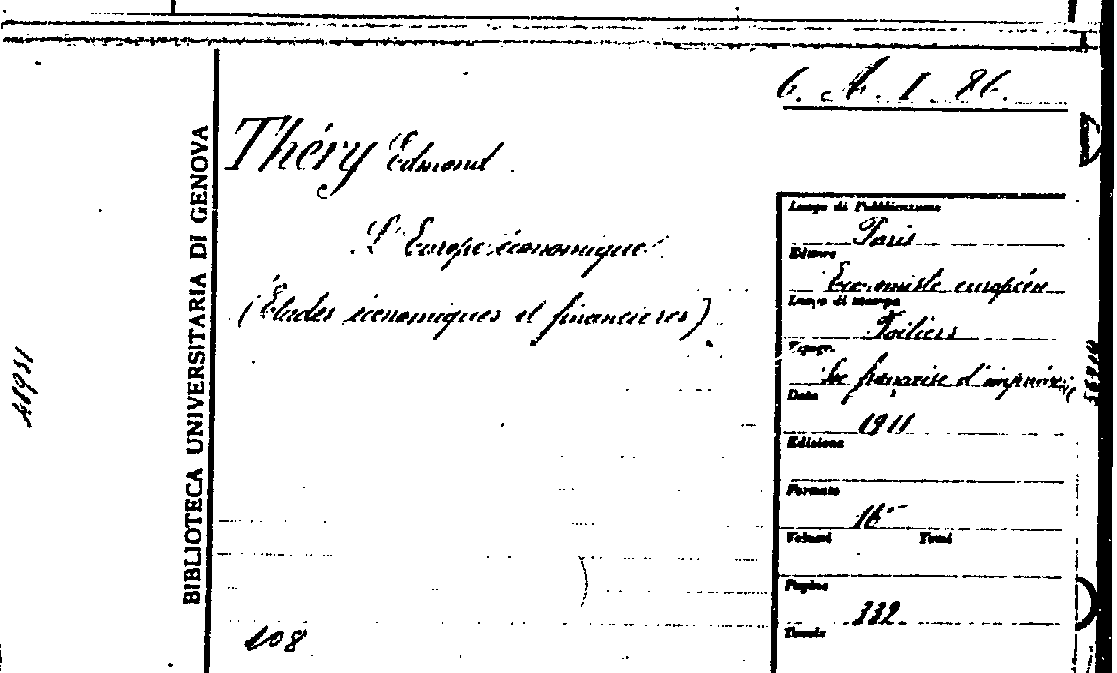 6. A. I. 86.
Théry Edmond
L'Europe économique
(Études économiques et financières)
BIBLIOTECA UNIVERSITARIA DI GENOVA
Luogo di Pubblicazione
Paris
Editore
Economiste européen
Luogo di stampa
Poitiers
Tipogr.
Soc française d'imprimerie
Data
1911
Edizione
Formato
16°
Volumi Tomi
Pagine
332
Tavole
108